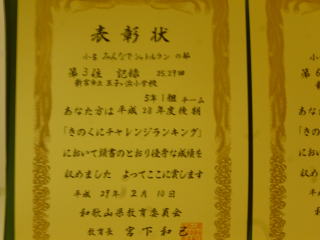 表彰状
小5 みんなでシャトルラン の部
第3位 記録 25.29回
新宮市立王子ヶ浜小学校
5年1組 チーム
あなた方は平成28年度後期
「きのくにチャレンジランキング」
において頭書のとおり優秀な成績を
収めました よってここに賞します
平成 29年 2月 10日
和歌山県教育委員会
教育長 宮下和己
あ
「き
に
収